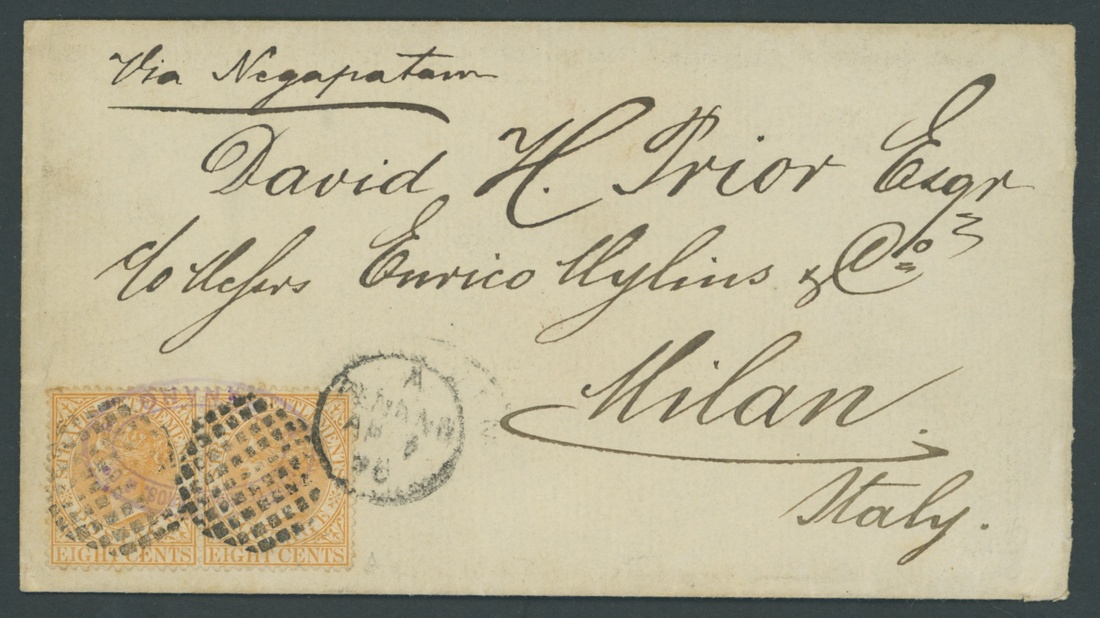 Via Negapatam
David H. Prior Esqr
c/o Messrs Enrico Mylius & Co
Milan.
Italy.
A
PENANG
AP
EIGHT CENTS EIGHT CENTS